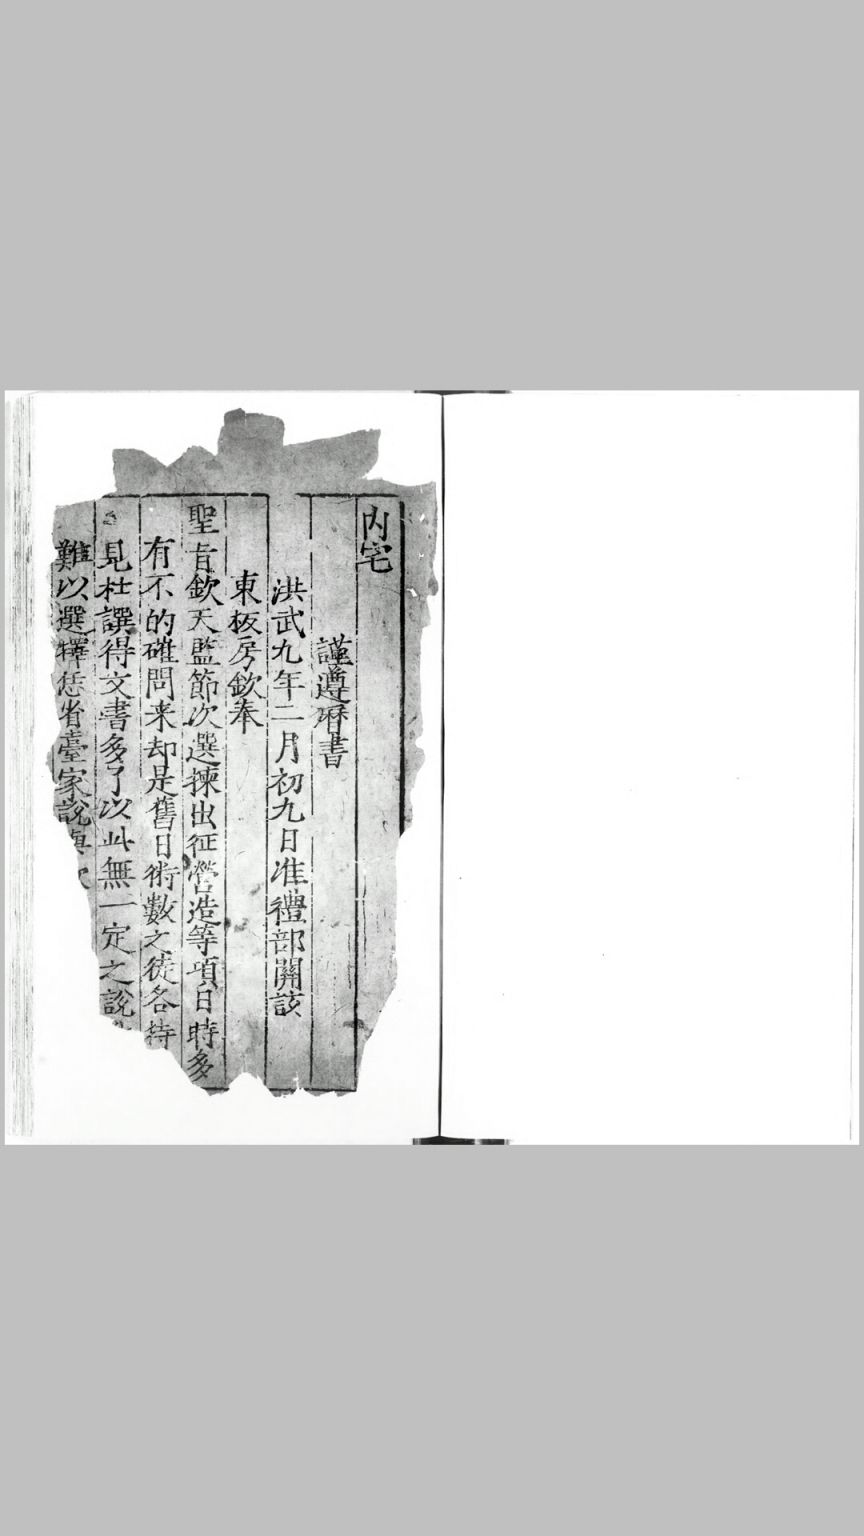 内宅
謹遵曆書
洪武九年二月初九日准禮部關該
東板房欽奉
聖旨欽天監節次選揀出征營造等項日時多
有不的確問来却是舊日術數之徒各持
見杜譔得文書多了以此無一定之說
難以選擇恁省臺家說